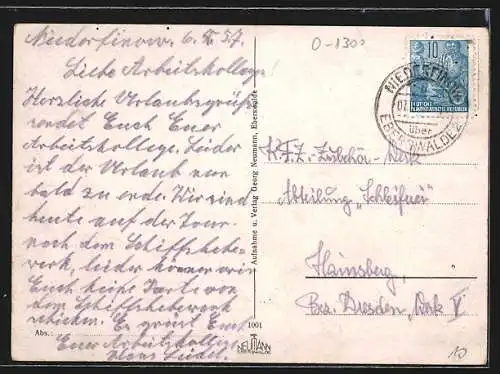 Niederfinow, 6.8.57.
Liebe Arbeitskollege!
Herzliche Urlaubsgrüße
sendet Euch Euer
Arbeitskollege. Leider
ist der Urlaub nur
bald zu ende. Wir sind
heute auf der Tour
nach dem Schiffshebe-
werk, leider können wir
Euch keine Karte von
dem Schiffshebewerk
schicken. Es grüst Euch
Euer Arbeitskollege
Hans
Abs.:
Aufnahme u. Verlag Georg Neumann, Eberswalde
1001
NEUMANN
EBERSWALDE
0-1300
10
DEUTSCHE
DEMOKRATISCHE REPUBLIK
NIEDERFINOW
über
EBERSWALDE 2
K.F.Z. Zubehör-Werk
Abteilung „Schleiferei“
Hainsberg,
Bez. Dresden, Werk V
10